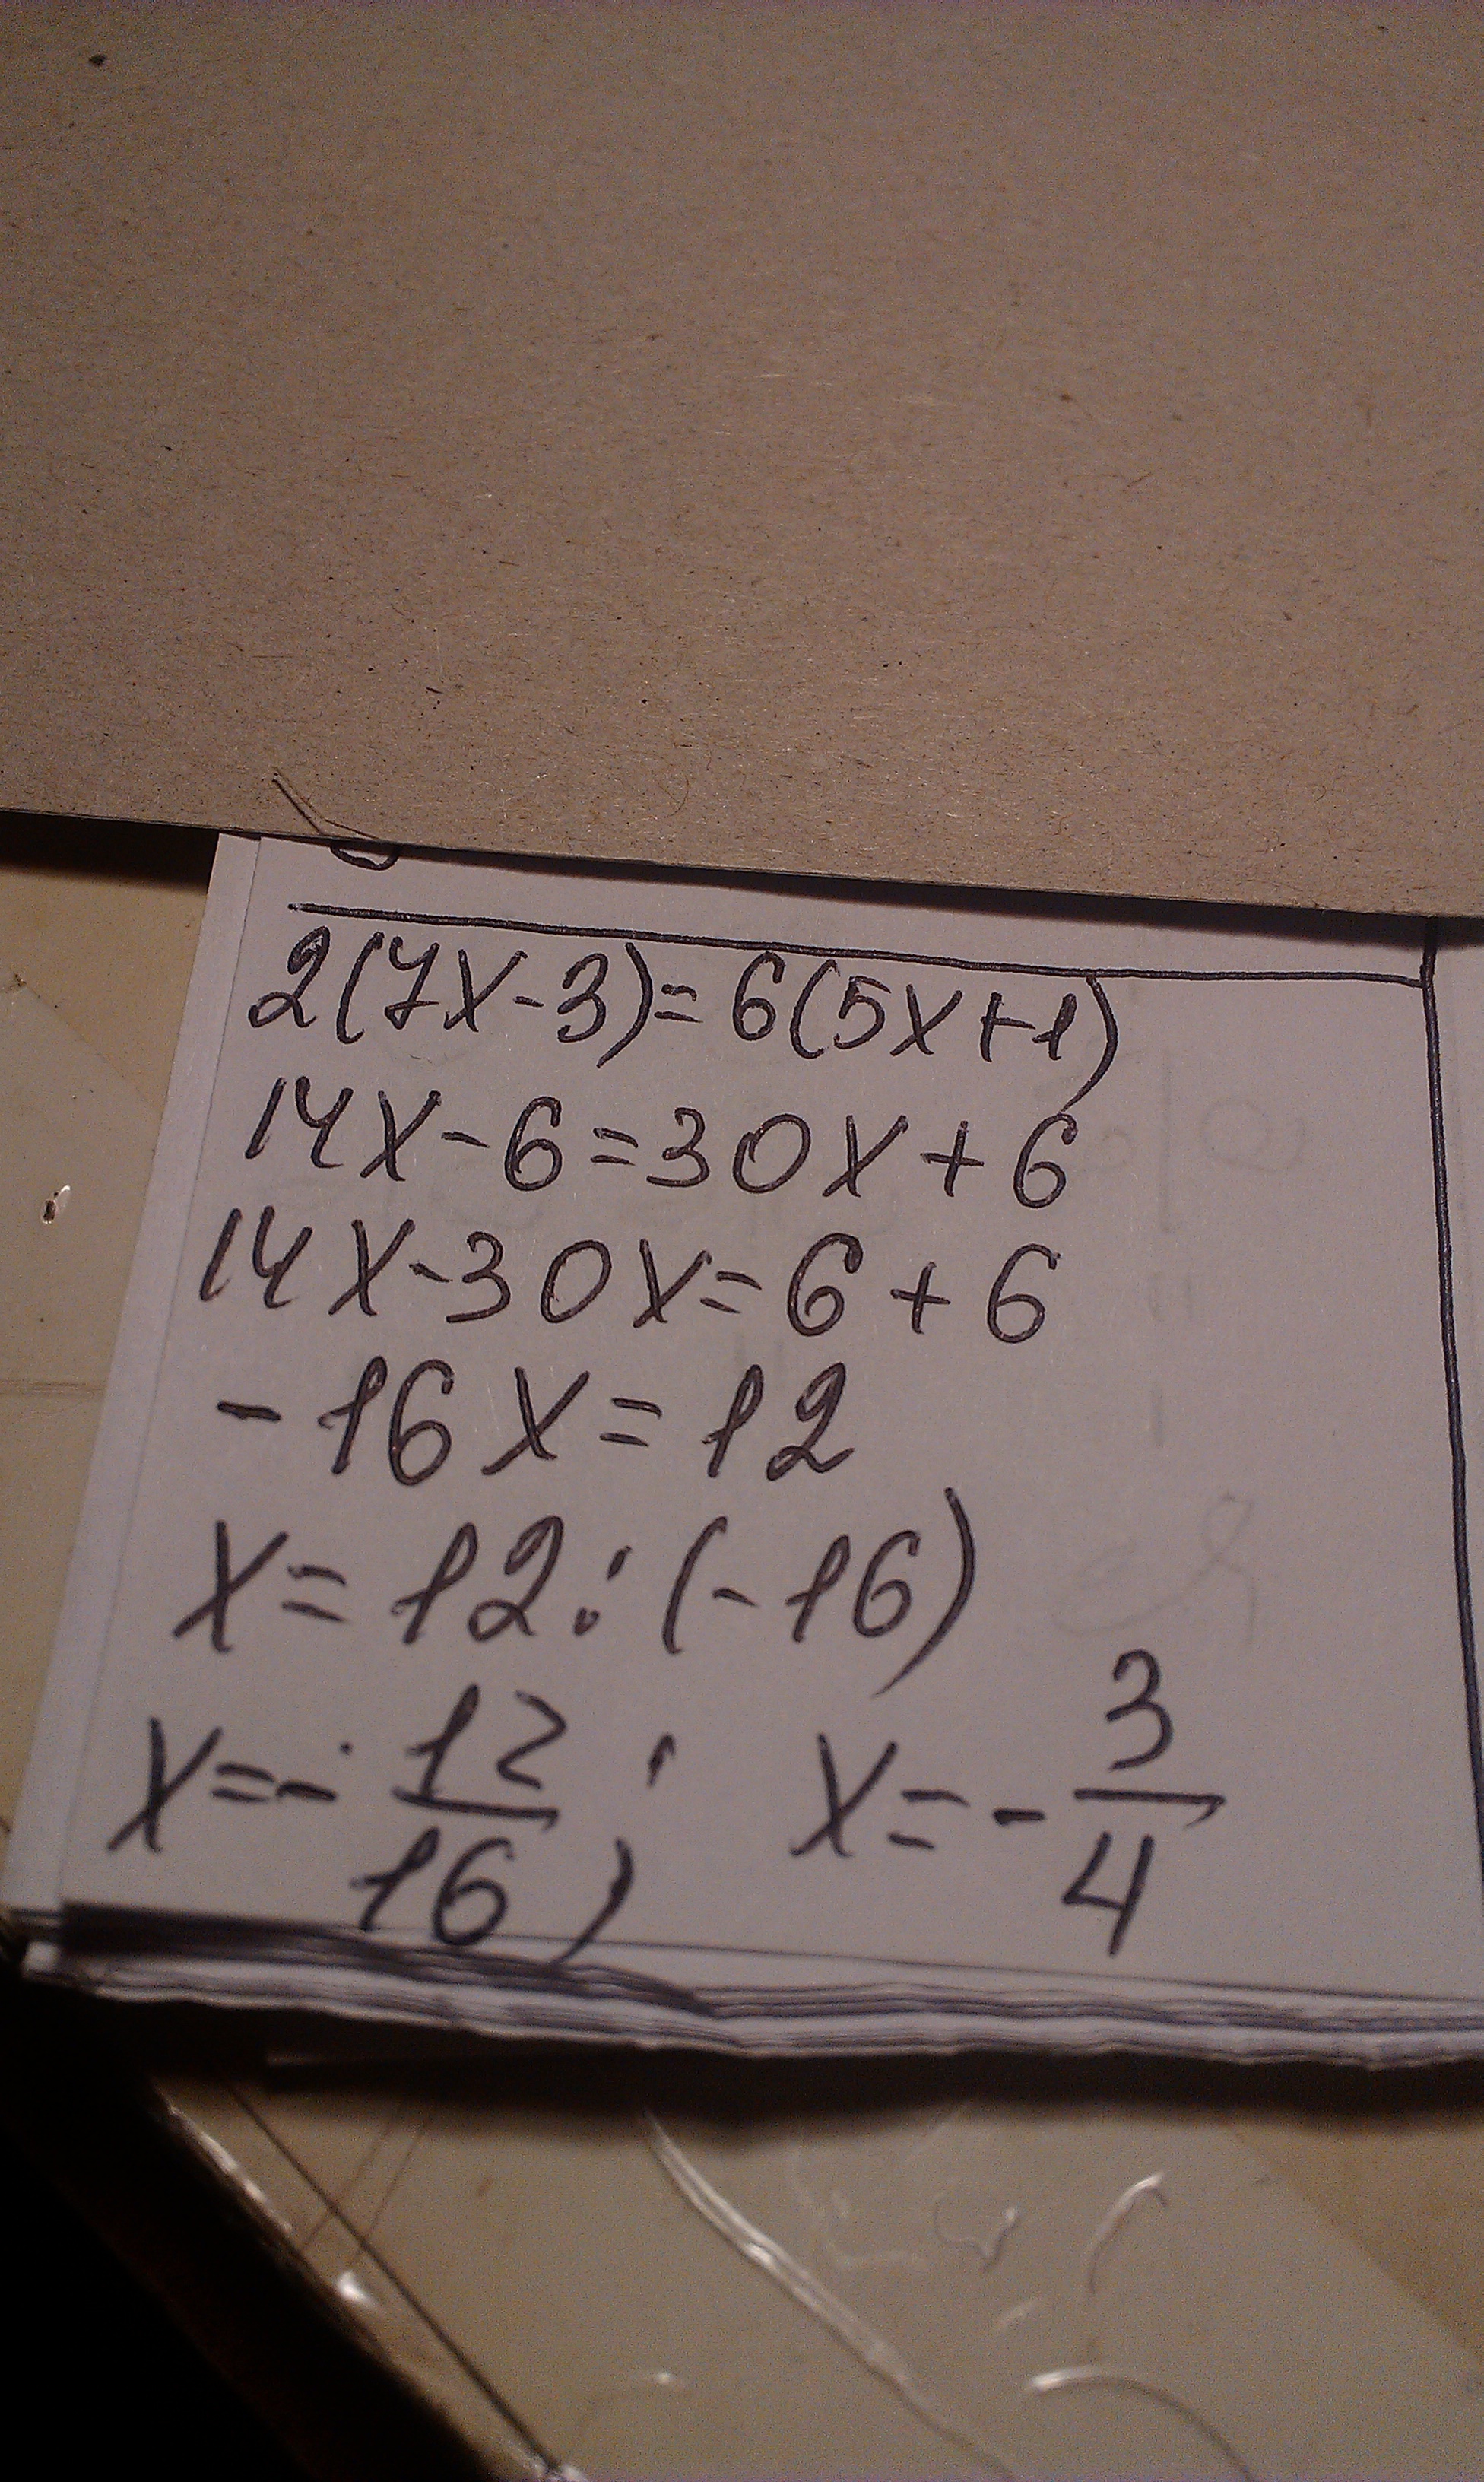 2(7x-3)=6(5x+1)
14x-6=30x+6
14x-30x=6+6
-16x=12
x=12:(-16)
x=-12/16; x=-3/4